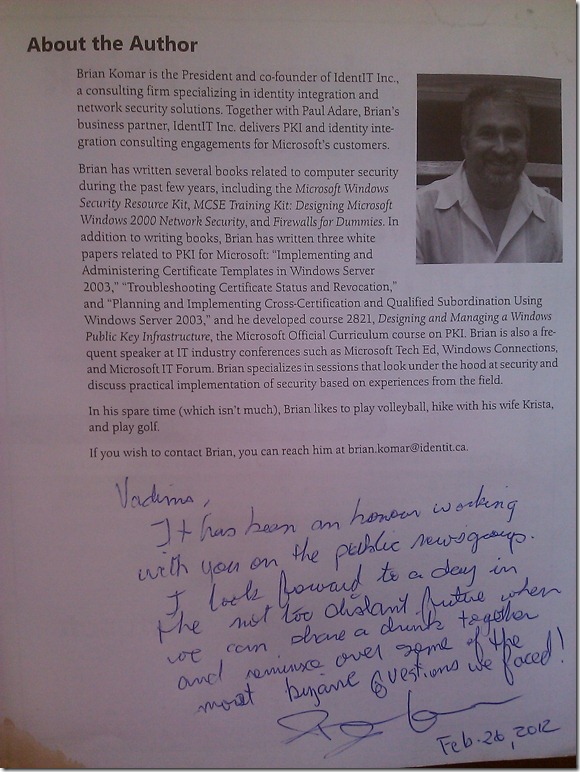 About the Author
Brian Komar is the President and co-founder of IdentIT Inc.,
a consulting firm specializing in identity integration and
network security solutions. Together with Paul Adare, Brian's
business partner, IdentIT Inc. delivers PKI and identity inte-
gration consulting engagements for Microsoft's customers.
Brian has written several books related to computer security
during the past few years, including the Microsoft Windows
Security Resource Kit, MCSE Training Kit: Designing Microsoft
Windows 2000 Network Security, and Firewalls for Dummies. In
addition to writing books, Brian has written three white
papers related to PKI for Microsoft: "Implementing and
Administering Certificate Templates in Windows Server
2003," "Troubleshooting Certificate Status and Revocation,"
and "Planning and Implementing Cross-Certification and Qualified Subordination Using
Windows Server 2003," and he developed course 2821, Designing and Managing a Windows
Public Key Infrastructure, the Microsoft Official Curriculum course on PKI. Brian is also a fre-
quent speaker at IT industry conferences such as Microsoft Tech Ed, Windows Connections,
and Microsoft IT Forum. Brian specializes in sessions that look under the hood at security and
discuss practical implementation of security based on experiences from the field.
In his spare time (which isn't much), Brian likes to play volleyball, hike with his wife Krista,
and play golf.
If you wish to contact Brian, you can reach him at brian.komar@identit.ca.
Vadims,
It has been an honour working
with you on the public newsgroup.
I look forward to a day in
the not too distant future when
we can share a drink together
and reminisce over some of the
most bizarre questions we faced!
Feb. 26, 2012